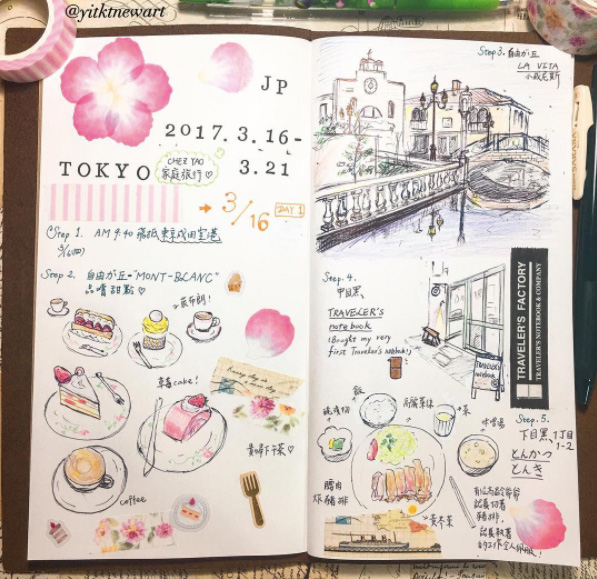 @yitktnewart
JP
2017. 3. 16-
3. 21
TOKYO
CHEZ YAO
家庭旅行♡
→ 3/16 DAY 1
Step 1. AM 9:40 飛抵東京成田空港
Step 2. 自由が丘="MONT-BLANC"
品嚐甜點♡
蒙布朗!
草莓cake!
貴婦下午茶♡
coffee
Step 3. 自由が丘
LA VITA
小威尼斯
Step 4.
中目黑、
TRAVELER'S
notebook
(Bought my very
first Traveler's notebook!)
TRAVELER'S
notebook
TRAVELER'S FACTORY
TRAVELER'S NOTEBOOK & COMPANY
Step 5.
下目黑、1丁目
1-2
とんかつ
とんき
飯
高麗菜絲
茶
味噌湯
腰肉
炸豬排